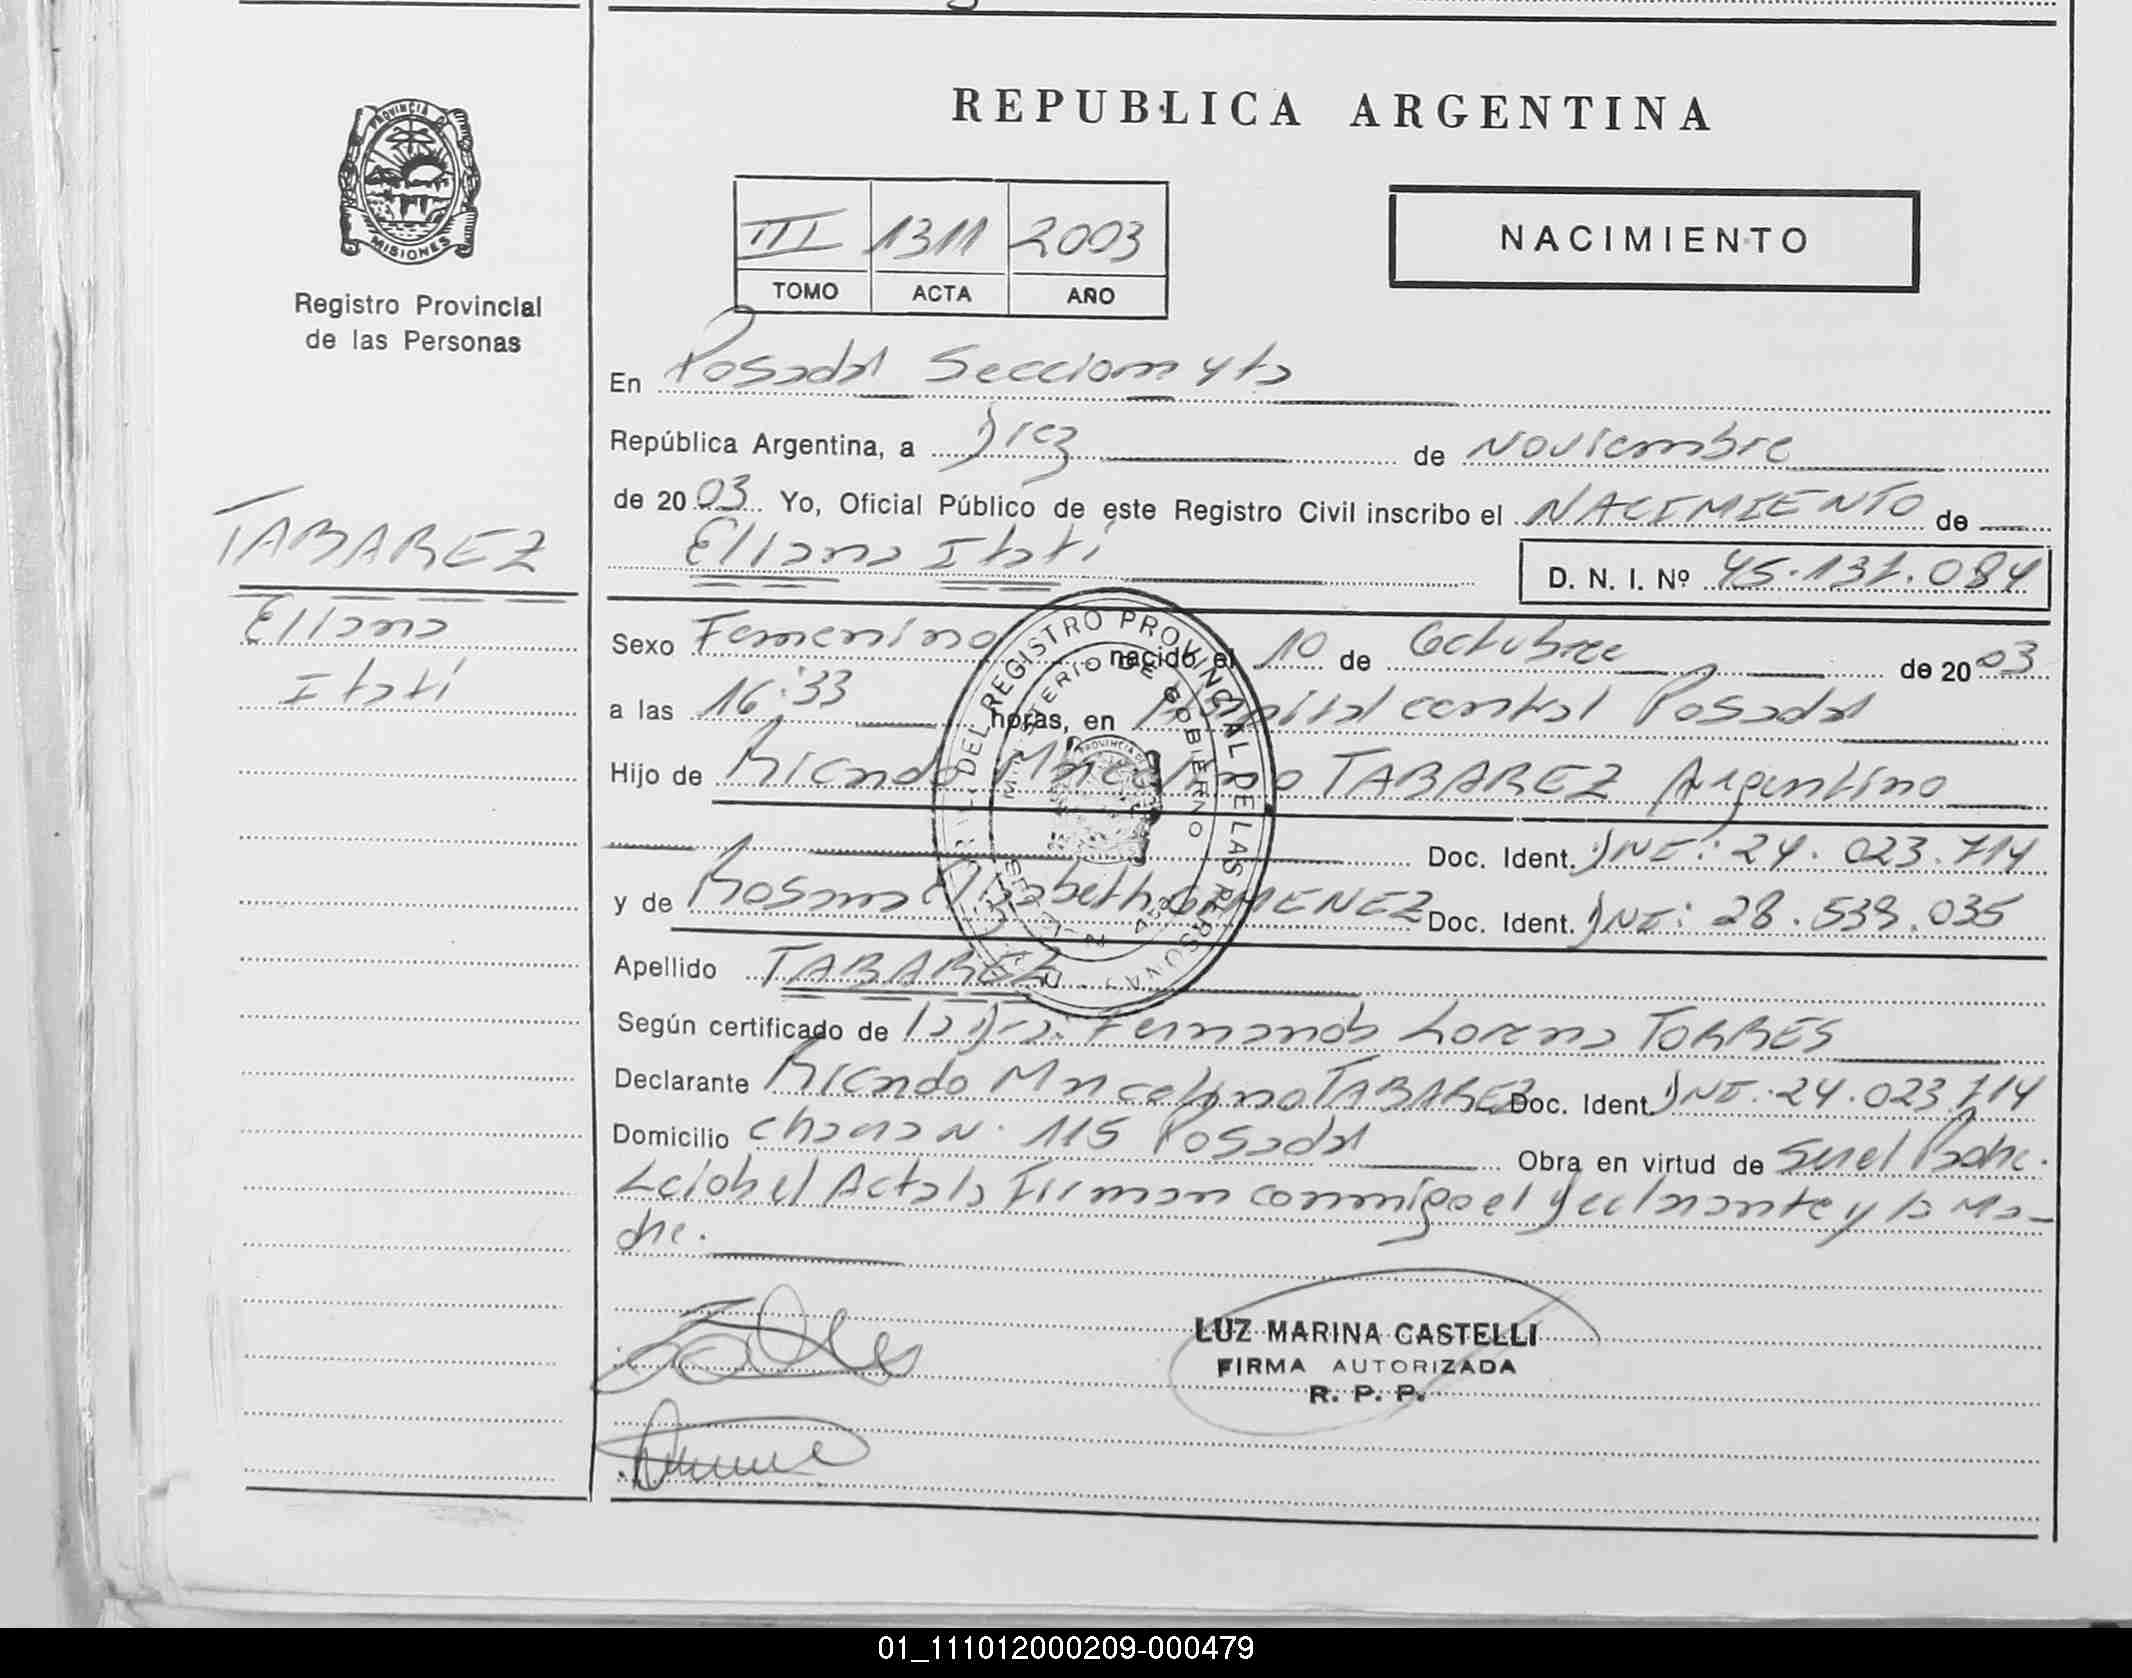 REPUBLICA ARGENTINA
PROVINCIA DE
MISIONES
Registro Provincial
de las Personas
III 1311 2003
TOMO ACTA AÑO
NACIMIENTO
En Posadas Seccion 4ta
República Argentina, a Diez de Noviembre
de 20 03 Yo, Oficial Público de este Registro Civil inscribo el NACIMIENTO de
Eliana Itatí D. N. I. Nº 45.131.084
TABAREZ
Eliana
Itatí
Sexo Femenino nacido el 10 de Octubre de 20 03
a las 16:33 horas, en Hospital central Posadas
Hijo de Ricardo Marcelino TABAREZ Argentino
Doc. Ident. DNI: 24.023.714
y de Rosana Elizabeth GIMENEZ Doc. Ident. DNI: 28.539.035
Apellido TABAREZ
Según certificado de la Dra. Fernanda Lorena TORRES
Declarante Ricardo Marcelino TABAREZ Doc. Ident. DNI: 24.023.714
Domicilio Nº 115 Posadas Obra en virtud de Ser el Padre.
Leida el Acta la Firman conmigo el Declarante y la Ma-
dre.
DEL REGISTRO PROVINCIAL DE LAS PERSONAS
MINISTERIO DE GOBIERNO
LUZ MARINA CASTELLI
FIRMA AUTORIZADA
R. P. P.
01_111012000209-000479